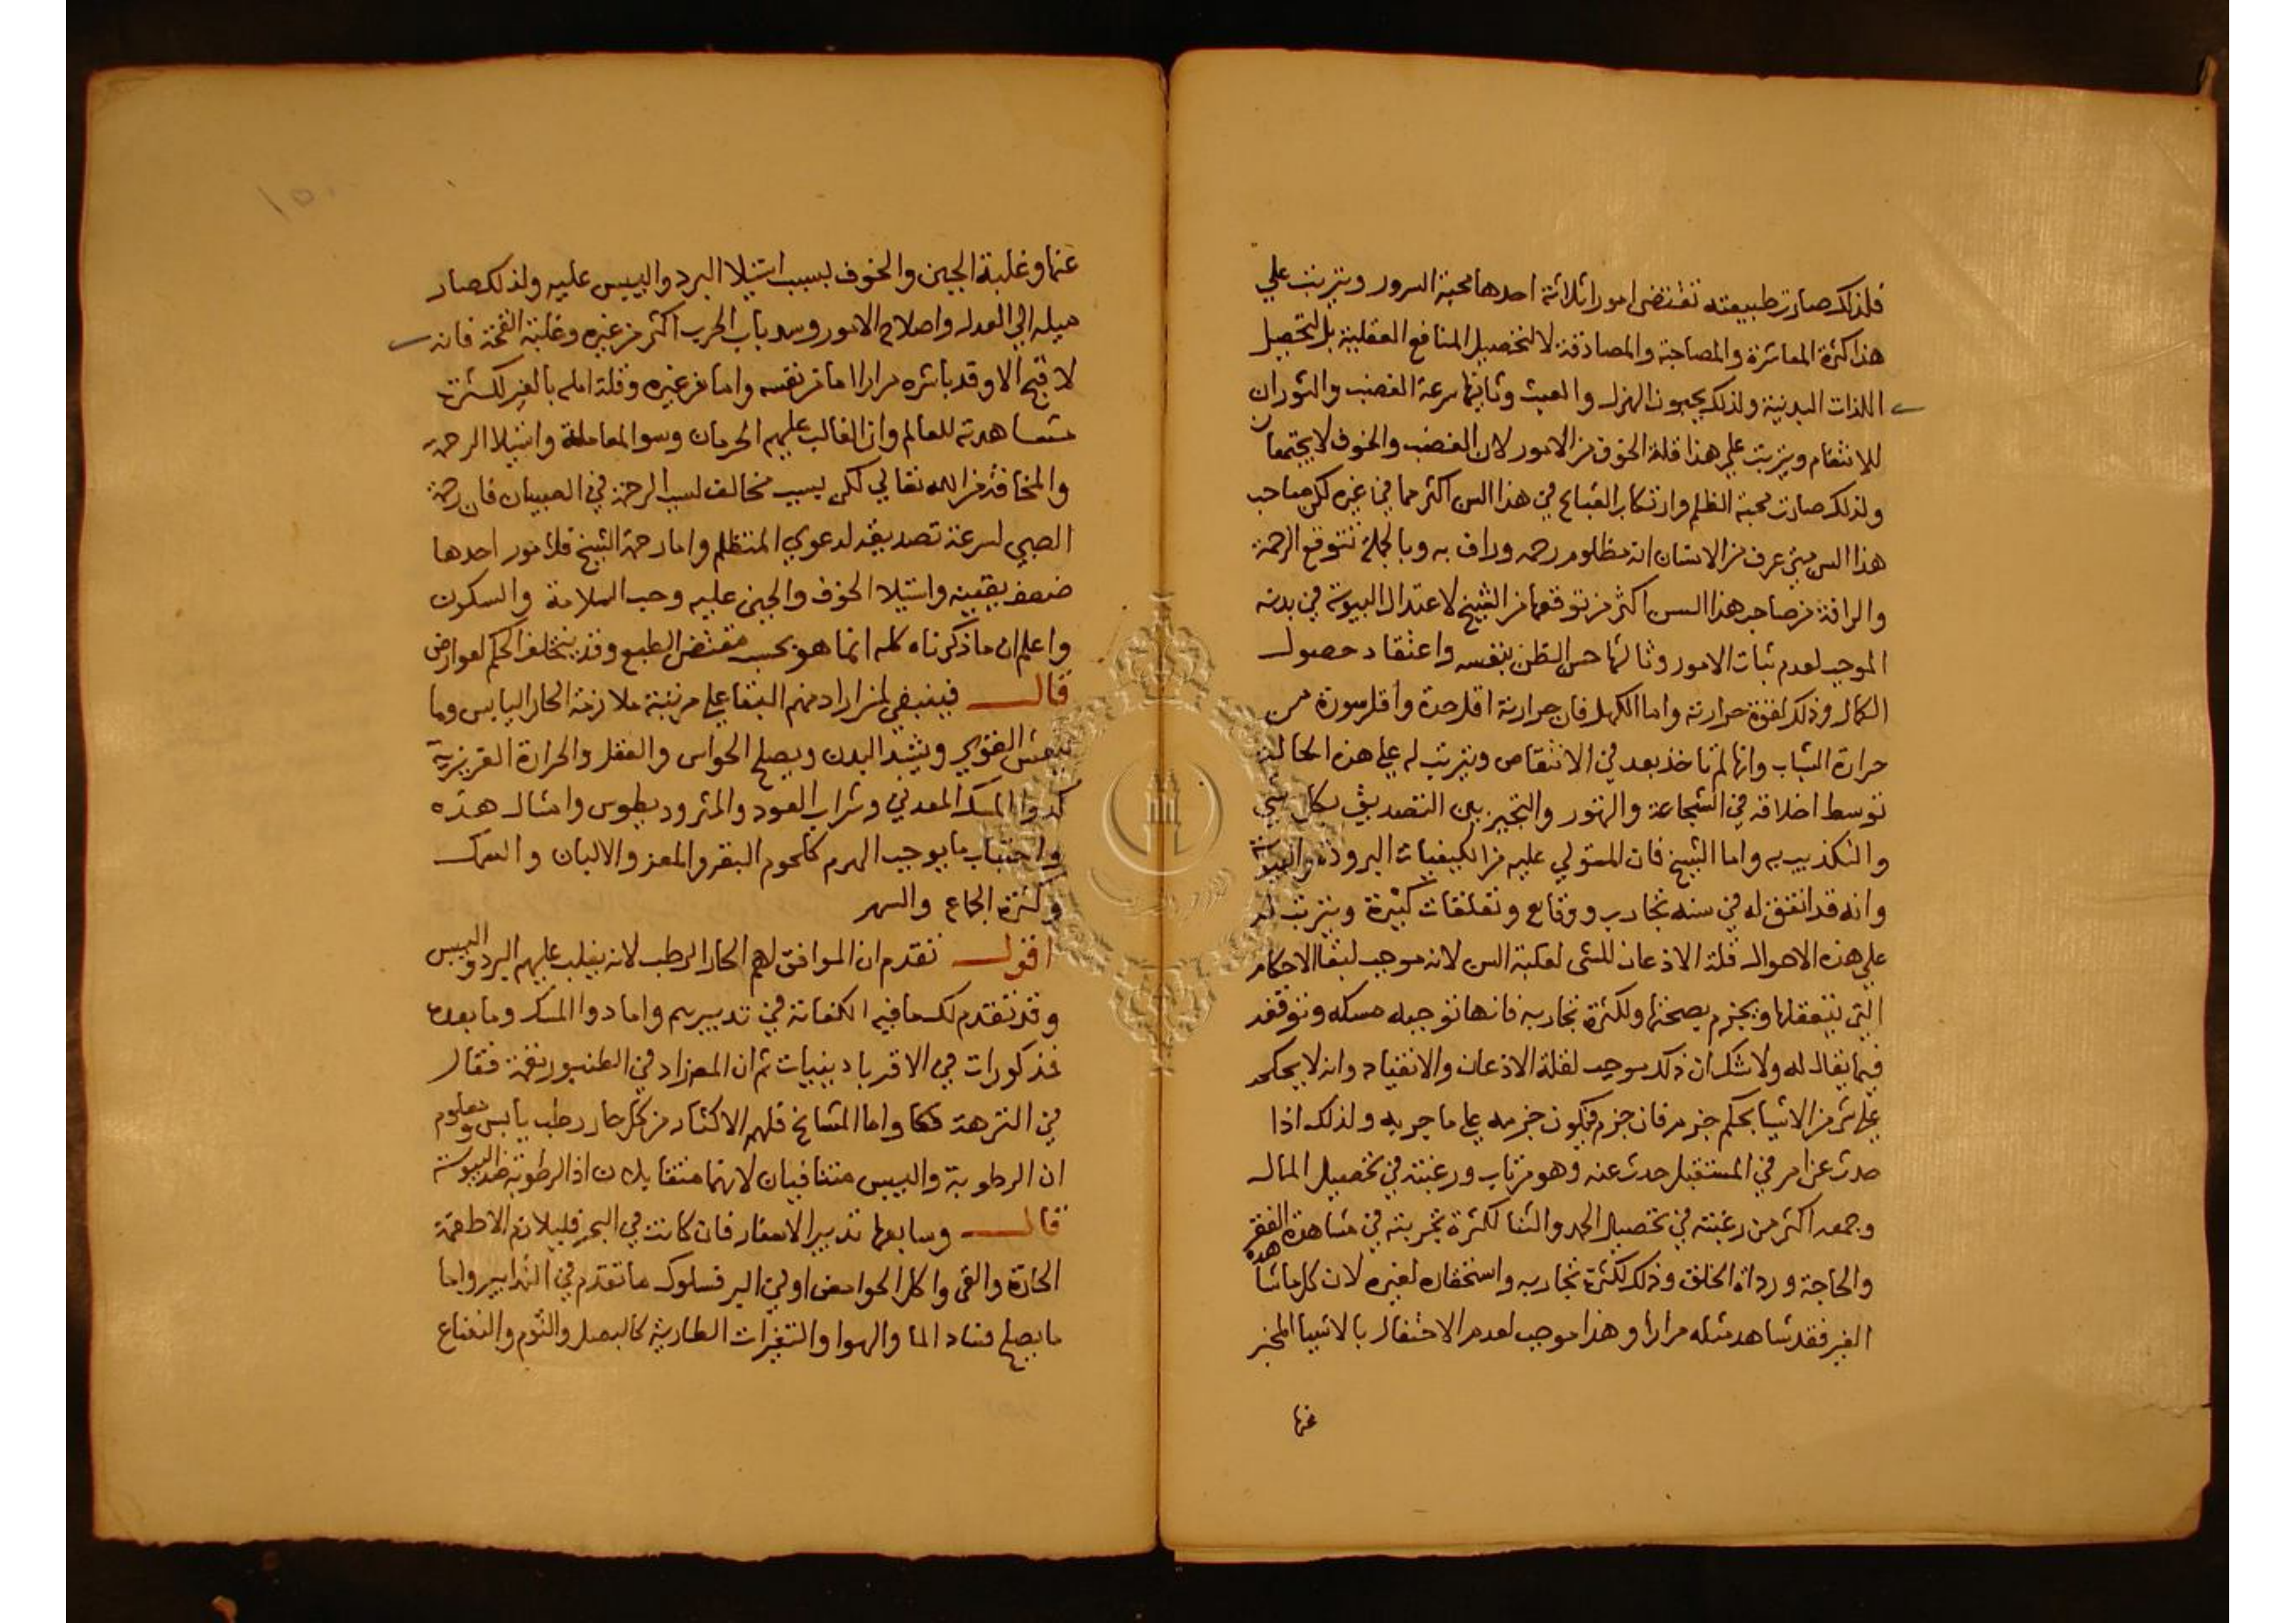 فلذلك صارت طبيعته تقتضى امورا ثلاثة احدها محبة السرور ويترتب علي
هذا كثرة المعاشرة والمصاحبة والمصادقة لا لتحصيل المنافع العقلية بل لتحصيل
اللذات البدنية ولذلك يحبون الهزل والعبث وثانيها سرعة الغضب والثوران
للانتقام ويترتب علي هذا قلة الخوف من الامور لان الغضب والخوف لا يجتمعان
ولذلك صارت محبة الظلم وارتكاب القبايح في هذا السن اكثر مما في غيره لكن صاحب
هذا السن متى عرف من الانسان انه مظلوم رحمه وراف به وبالجملة تتوقع الرحمة
والرافة من صاحب هذا السن اكثر من توقعها من الشيخ لاعتدال اليبوسة في بدنه
الموجب لعدم ثبات الامور وثالثها حسن الظن بنفسه واعتقاد حصول
الكمال وذلك لقوة حرارته واما الكهل فان حرارته اقل حدة واقل سورة من
حرارة الشباب وانها لم تاخذ بعد في الانتقاص ويترتب له على هذه الحالة
توسط اخلاقه في الشجاعة والتهور والتخيير بين التصديق بكل شي
والتكذيب به واما الشيخ فان المستولي عليه من الكيفيات البرودة واليبوسة
وانه قد اتفق له في سنه تجارب ووقايع وتعلقات كثيرة ويترتب له
علي هذه الاحوال قلة الاذعان للشى لغلبة السن لانه موجب لبقا الاحكام
التي يتعقلها ويجزم بصحتها ولكثرة تجاربه فانها توجبه مسكه وتوقفه
فيما يقال له ولا شك ان ذلك موجب لقلة الاذعان والانقياد وانه لا يحكم
على شي من الاشيا بحكم جزم فان جزم فيكون جزمه على ما جربه ولذلك اذا
حدث عن امر في المستقبل حدث عنه وهو مرتاب ورغبته في تحصيل المال
وجمعه اكثر من رغبته في تحصيل الحمد والثنا لكثرة تجربته في مشاهدة الفقر
والحاجة ورداة الخلق وذلك لكثرة تجاربه واستخفافه لغيره لان كل ما شاهده
الغير فقد شاهد مثله مرارا وهذا موجب لعدم الاحتفال بالاشيا المخبر
عنها
١٥٠
عنها وغلبة الجبن والخوف بسبب استيلا البرد واليبس عليه ولذلك صار
ميله الي العدل واصلاح الامور وسد باب الحرب اكثر من غيره وغلبة القحة فانه
لا قبح الا وقد باشره مرارا اما من نفسه واما من غيره وقلة امله بالغير لكثرت
مشاهدته للعالم وان الغالب عليهم الحرمان وسو المعاملة واستيلا الرحمة
والمخافة من الله تعالي لكن بسبب مخالف لسبب الرحمة في الصبيان فان رحمة
الصبي لسرعة تصديقه لدعوي المتظلم واما رحمة الشيخ فلامور احدها
ضعف يقينه واستيلا الخوف والجبن عليه وحب السلامة والسكون
واعلم ان ما ذكرناه كله انما هو بحسب مقتضى الطبع وقد يتخلف الحكم لعوارض
قال فينبغي لمن اراد منهم البقا على مرتبة ملازمة الحار اليابس وما
ينعش القوي ويشد البدن ويصلح الحواس والعقل والحرارة الغريزية
كدوا المسك المعدني وشراب العود والمثروديطوس وامثال هذه
واجتناب ما يوجب الهرم كلحوم البقر والمعز والالبان والسمك
وكثرة الجماع والسهر
اقول تقدم ان الموافق لهم الحار الرطب لانه يغلب عليهم البرد واليبس
وقد تقدم لك ما فيه الكفاية في تدبيرهم واما دوا المسك وما بعده
فمذكورات في الاقرباديينيات ثم ان المص زاد في الطنبور نغمة فقال
في النزهة هكذا واما المشايخ فلهم الاكثار من كل حار رطب يابس ومعلوم
ان الرطوبة واليبس متنافيان لانهما متقابلان اذ الرطوبة ضد اليبوسة
قال وسابعها تدبير الاسفار فان كانت في البحر فليلازم الاطعمة
الحارة والقى واكل الحوامض او في البر فسلوك ما تقدم في التدابير واما
ما يصلح فساد الما والهوا والتغيرات الطارية كالبصل والثوم والنعناع